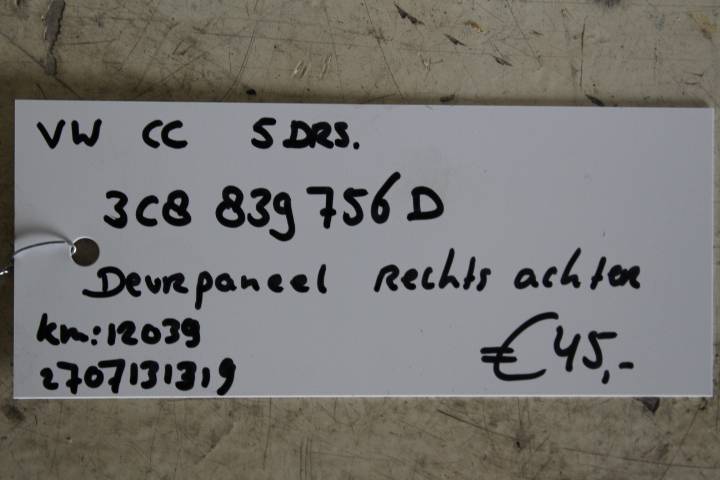 VW CC 5 DRS.
3C8 839 756 D
Deurpaneel Rechts achter
km: 12039
2707131319
€ 45,-